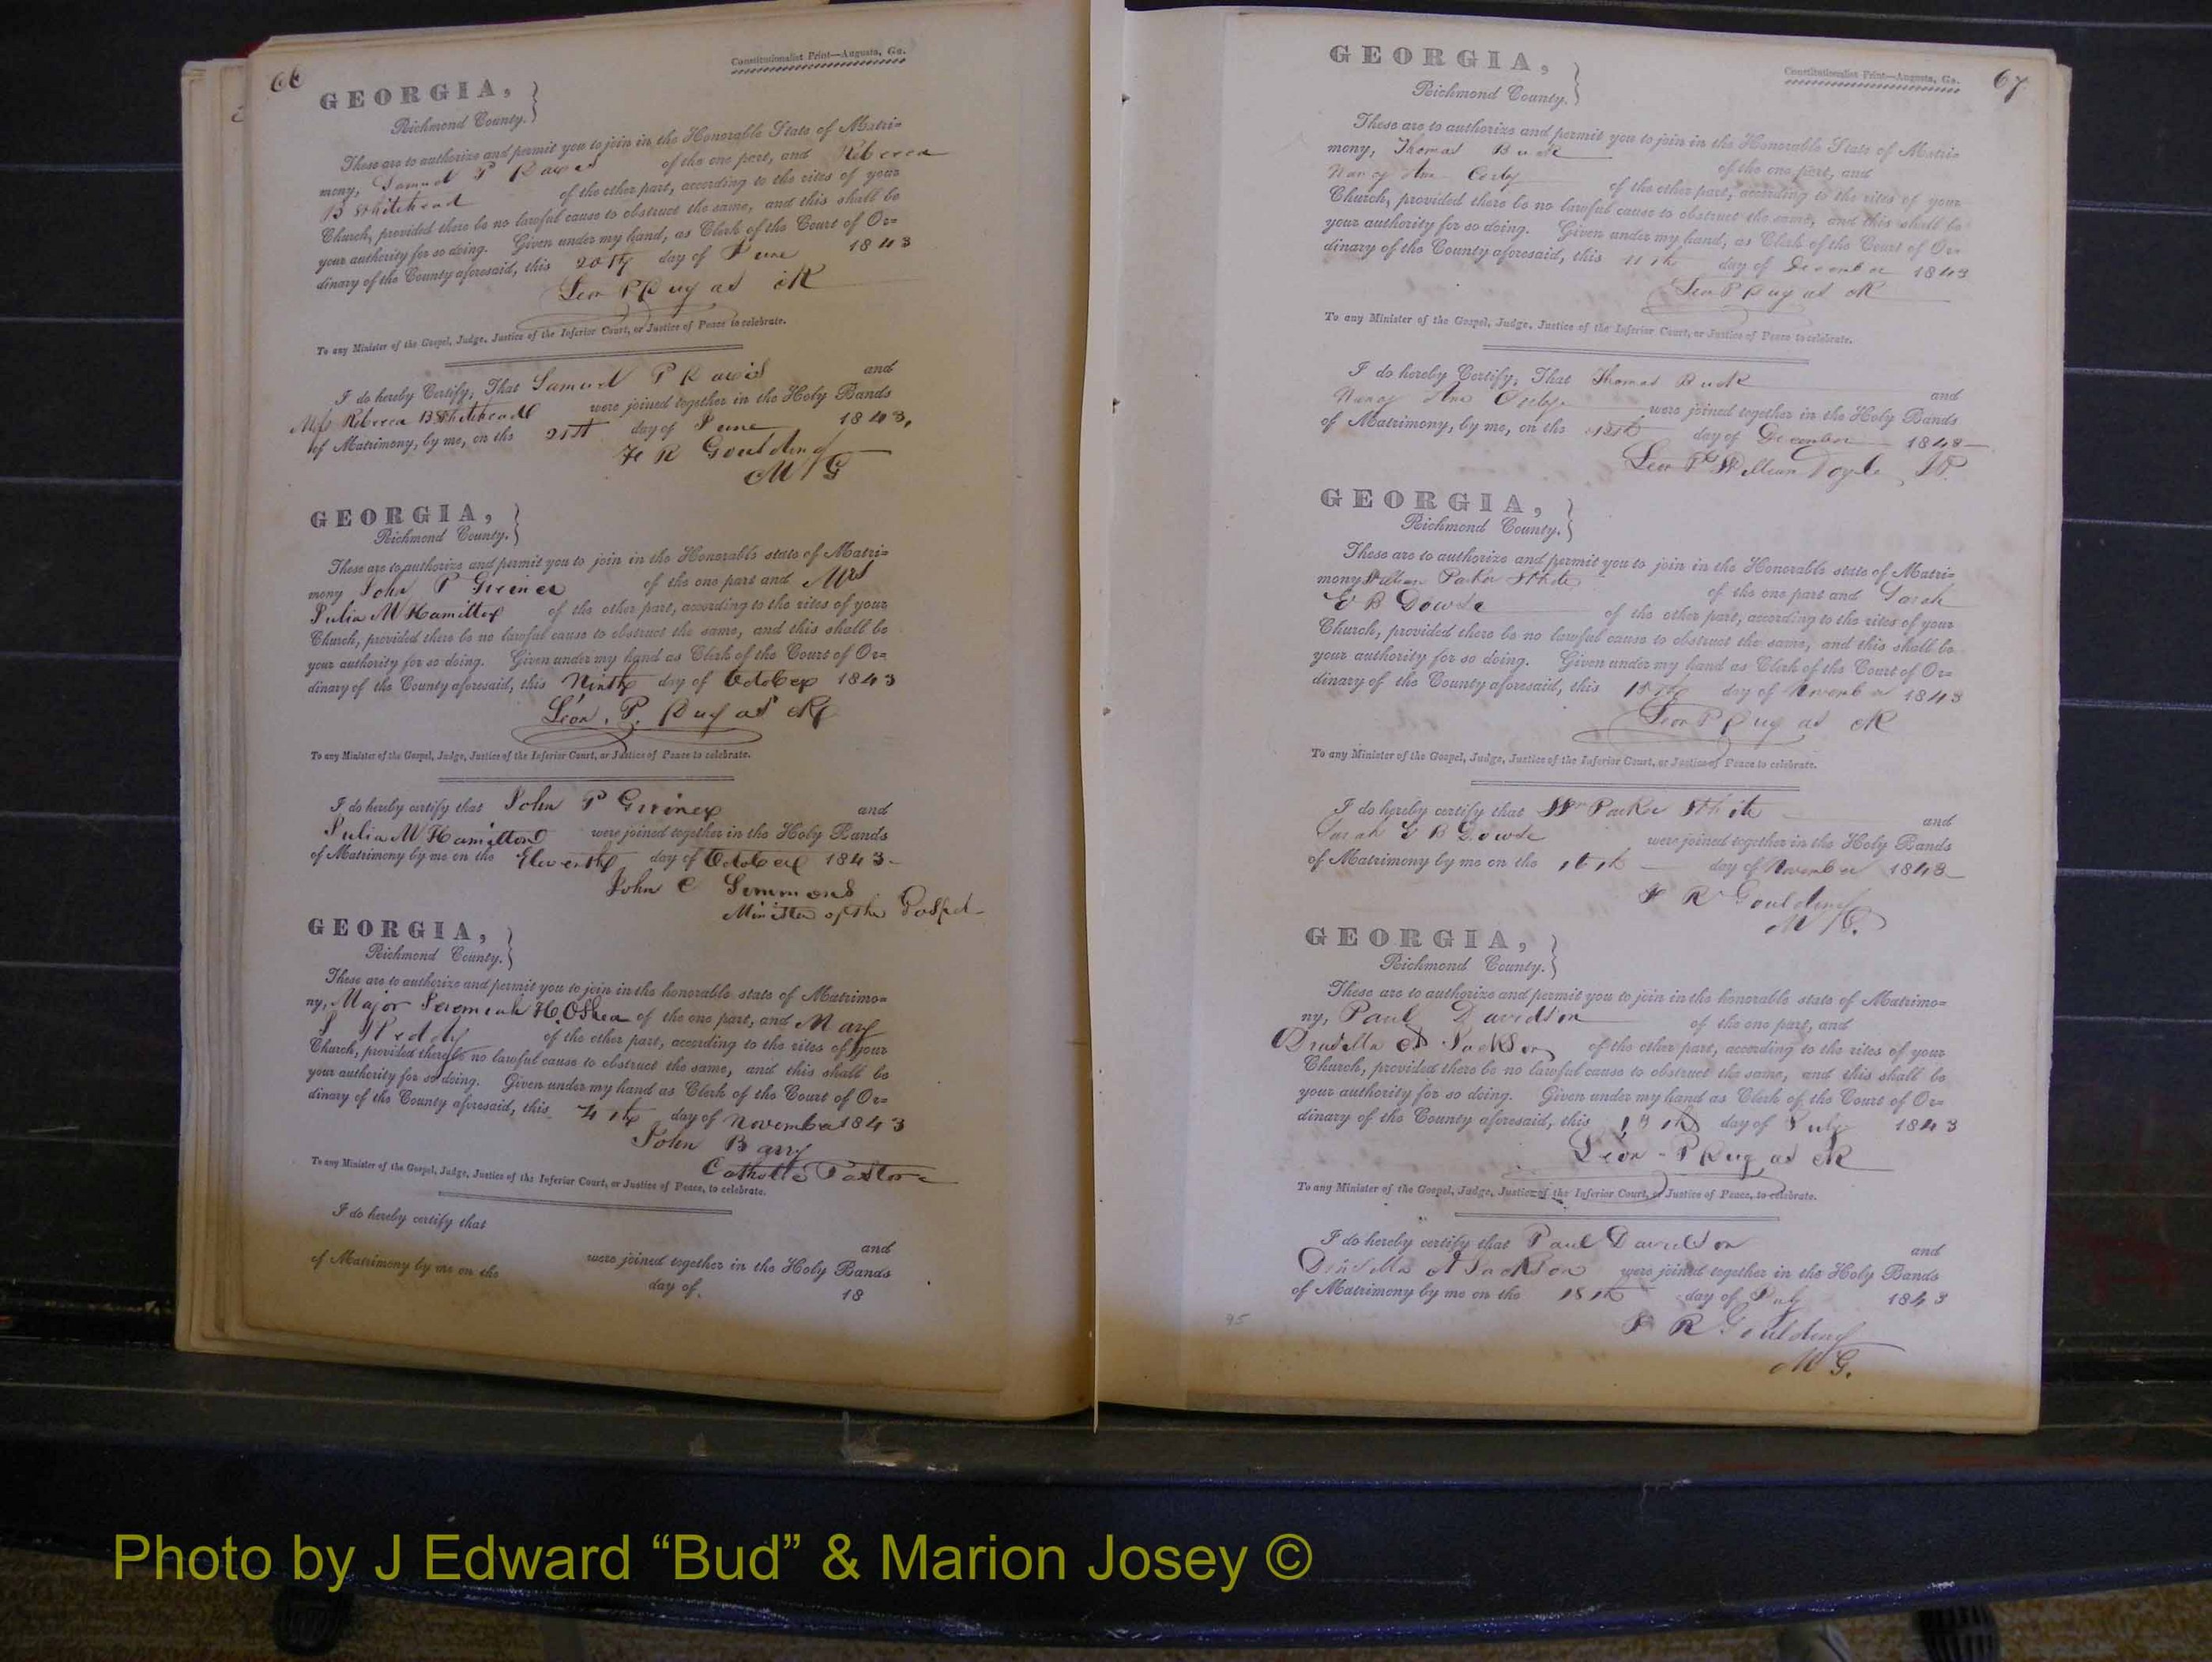 66
Constitutionalist Print—Augusta, Ga.
GEORGIA,
Richmond County.
These are to authorize and permit you to join in the Honorable State of Matri=
mony, Samuel P of the one part, and Rebecca
B Whitehead of the other part, according to the rites of your
Church, provided there be no lawful cause to obstruct the same, and this shall be
your authority for so doing. Given under my hand, as Clerk of the Court of Or=
dinary of the County aforesaid, this 20th day of June 1843
Leon P Dugas
To any Minister of the Gospel, Judge, Justice of the Inferior Court, or Justice of Peace to celebrate.
I do hereby Certify, That Samuel P and
Rebecca B Whitehead were joined together in the Holy Bands
of Matrimony, by me, on the 21st day of June 1843,
F R Goulding
M G
GEORGIA,
Richmond County.
These are to authorize and permit you to join in the Honorable state of Matri=
mony John P Greiner of the one part and Mrs
Julia M Hamilton of the other part, according to the rites of your
Church, provided there be no lawful cause to obstruct the same, and this shall be
your authority for so doing. Given under my hand as Clerk of the Court of Or=
dinary of the County aforesaid, this Ninth day of October 1843
Leon. P. Dugas
To any Minister of the Gospel, Judge, Justice of the Inferior Court, or Justice of Peace to celebrate.
I do hereby certify that John P Greiner and
Julia M Hamilton were joined together in the Holy Bands
of Matrimony by me on the Eleventh day of October 1843-
John C Simmons
Minister of the Gospel-
GEORGIA,
Richmond County.
These are to authorize and permit you to join in the honorable state of Matrimo=
ny, Major Jeremiah H. OShea of the one part, and Mary
of the other part, according to the rites of your
Church, provided there be no lawful cause to obstruct the same, and this shall be
your authority for so doing. Given under my hand as Clerk of the Court of Or=
dinary of the County aforesaid, this 4th day of November 1843
John Barry
Catholic Pastor
To any Minister of the Gospel, Judge, Justice of the Inferior Court, or Justice of Peace, to celebrate.
I do hereby certify that
and
were joined together in the Holy Bands
of Matrimony by me on the day of 18
67
Constitutionalist Print—Augusta, Ga.
GEORGIA,
Richmond County.
These are to authorize and permit you to join in the Honorable State of Matri=
mony, Thomas Buck of the one part, and
Nancy Ann of the other part, according to the rites of your
Church, provided there be no lawful cause to obstruct the same, and this shall be
your authority for so doing. Given under my hand, as Clerk of the Court of Or=
dinary of the County aforesaid, this 11th day of December 1843
Leon P Dugas
To any Minister of the Gospel, Judge, Justice of the Inferior Court, or Justice of Peace to celebrate.
I do hereby Certify, That Thomas Buck and
Nancy Ann were joined together in the Holy Bands
of Matrimony, by me, on the 12th day of December 1843
William Doyle JP.
GEORGIA,
Richmond County.
These are to authorize and permit you to join in the Honorable state of Matri=
mony William Parker White of the one part and Sarah
E B Dowse of the other part, according to the rites of your
Church, provided there be no lawful cause to obstruct the same, and this shall be
your authority for so doing. Given under my hand as Clerk of the Court of Or=
dinary of the County aforesaid, this day of November 1843
Leon P Dugas
To any Minister of the Gospel, Judge, Justice of the Inferior Court, or Justice of Peace to celebrate.
I do hereby certify that Wm Parker White and
Sarah E B Dowse were joined together in the Holy Bands
of Matrimony by me on the 16th day of November 1843
F R Goulding
M G.
GEORGIA,
Richmond County.
These are to authorize and permit you to join in the honorable state of Matrimo=
ny, Paul Davidson of the one part, and
Drusilla A Jackson of the other part, according to the rites of your
Church, provided there be no lawful cause to obstruct the same, and this shall be
your authority for so doing. Given under my hand as Clerk of the Court of Or=
dinary of the County aforesaid, this day of July 1843
Leon - P Dugas
To any Minister of the Gospel, Judge, Justice of the Inferior Court, or Justice of Peace, to celebrate.
I do hereby certify that Paul Davidson and
Drusilla A Jackson were joined together in the Holy Bands
of Matrimony by me on the 18th day of July 1843
F R Goulding
M G.
95
Photo by J Edward “Bud” & Marion Josey ©